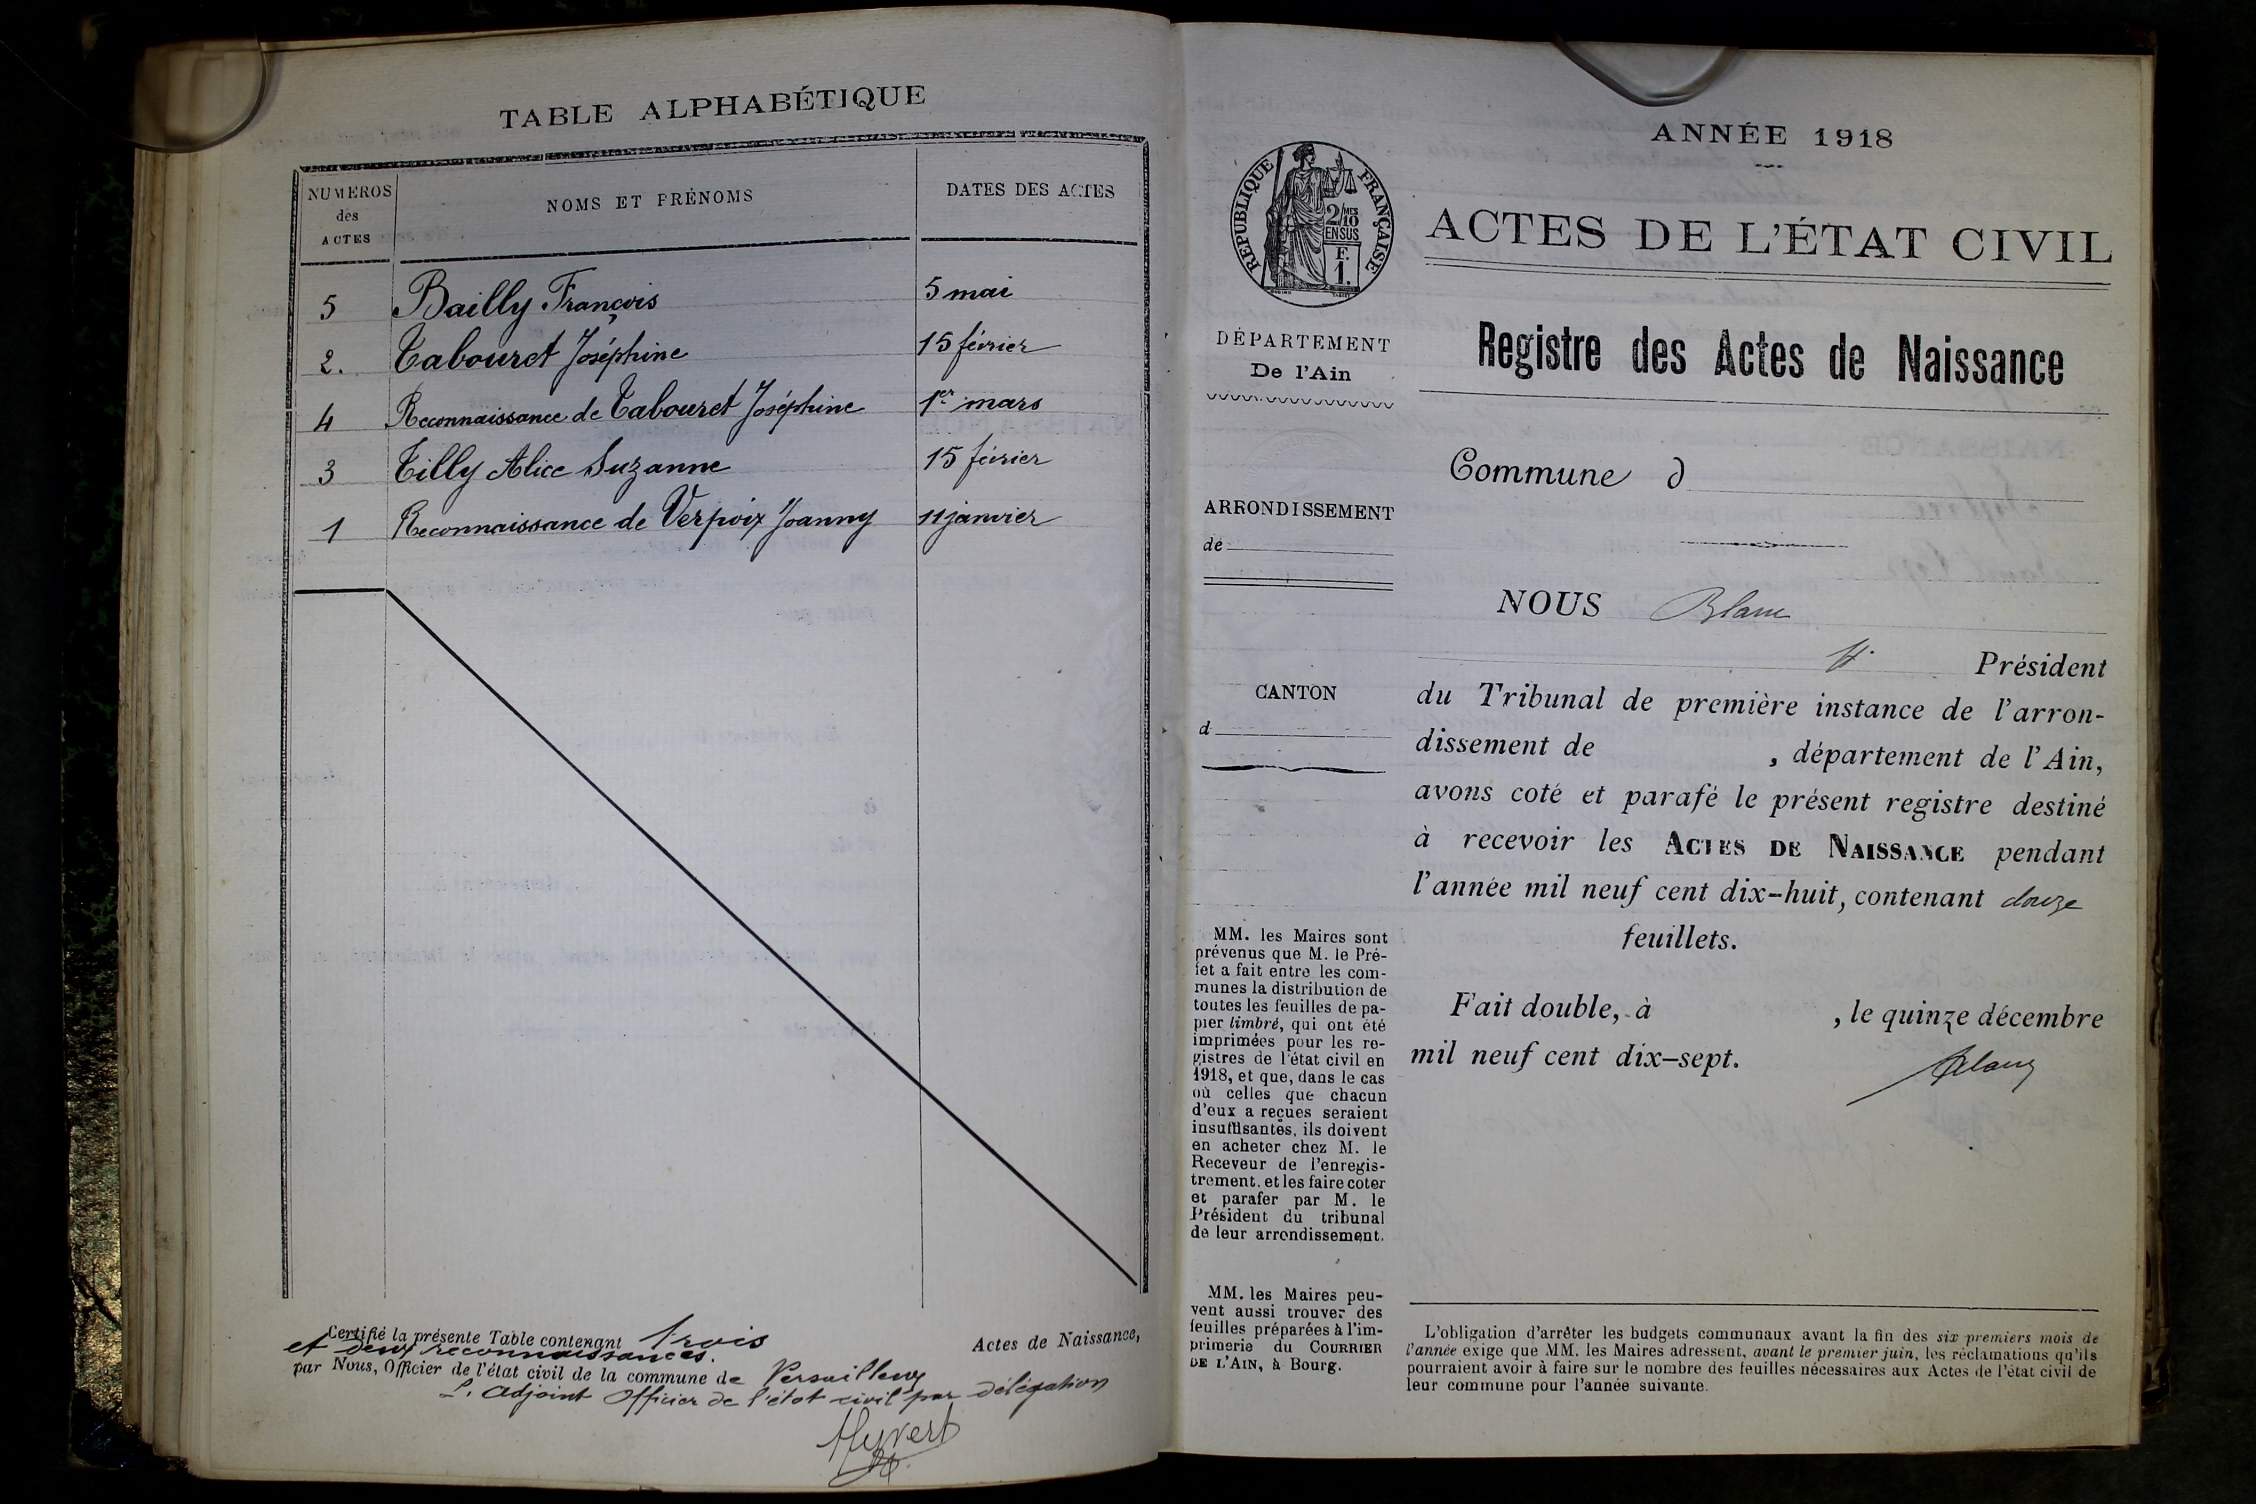 TABLE ALPHABÉTIQUE
NUMEROS
des
ACTES
NOMS ET PRÉNOMS
DATES DES ACTES
5 Bailly François 5 mai
2. Tabouret Joséphine 15 février
4 Reconnaissance de Tabouret Joséphine 1er mars
3 Tilly Alice Suzanne 15 février
1 Reconnaissance de Verpoix Joanny 11 janvier
Certifié la présente Table contenant trois Actes de Naissance,
et deux reconnaissances.
par Nous, Officier de l'état civil de la commune de Versailleux
L'adjoint Officier de l'état civil par délégation
Hyvert
ANNÉE 1918
RÉPUBLIQUE FRANÇAISE
2/10 MES
EN SUS
F.
1.
ACTES DE L'ÉTAT CIVIL
DÉPARTEMENT
De l'Ain
Registre des Actes de Naissance
Commune d
ARRONDISSEMENT
de
NOUS Blanc
Président
CANTON
d
du Tribunal de première instance de l'arron-
dissement de , département de l'Ain,
avons coté et parafé le présent registre destiné
à recevoir les ACTES DE NAISSANCE pendant
l'année mil neuf cent dix-huit, contenant douze
feuillets.
Fait double, à , le quinze décembre
mil neuf cent dix-sept.
Blanc
MM. les Maires sont
prévenus que M. le Pré-
fet a fait entre les com-
munes la distribution de
toutes les feuilles de pa-
pier timbré, qui ont été
imprimées pour les re-
gistres de l'état civil en
1918, et que, dans le cas
où celles que chacun
d'eux a reçues seraient
insuffisantes, ils doivent
en acheter chez M. le
Receveur de l'enregis-
trement, et les faire coter
et parafer par M. le
Président du tribunal
de leur arrondissement.
MM. les Maires peu-
vent aussi trouver des
feuilles préparées à l'im-
primerie du COURRIER
DE L'AIN, à Bourg.
L'obligation d'arrêter les budgets communaux avant la fin des six premiers mois de
l'année exige que MM. les Maires adressent, avant le premier juin, les réclamations qu'ils
pourraient avoir à faire sur le nombre des feuilles nécessaires aux Actes de l'état civil de
leur commune pour l'année suivante.